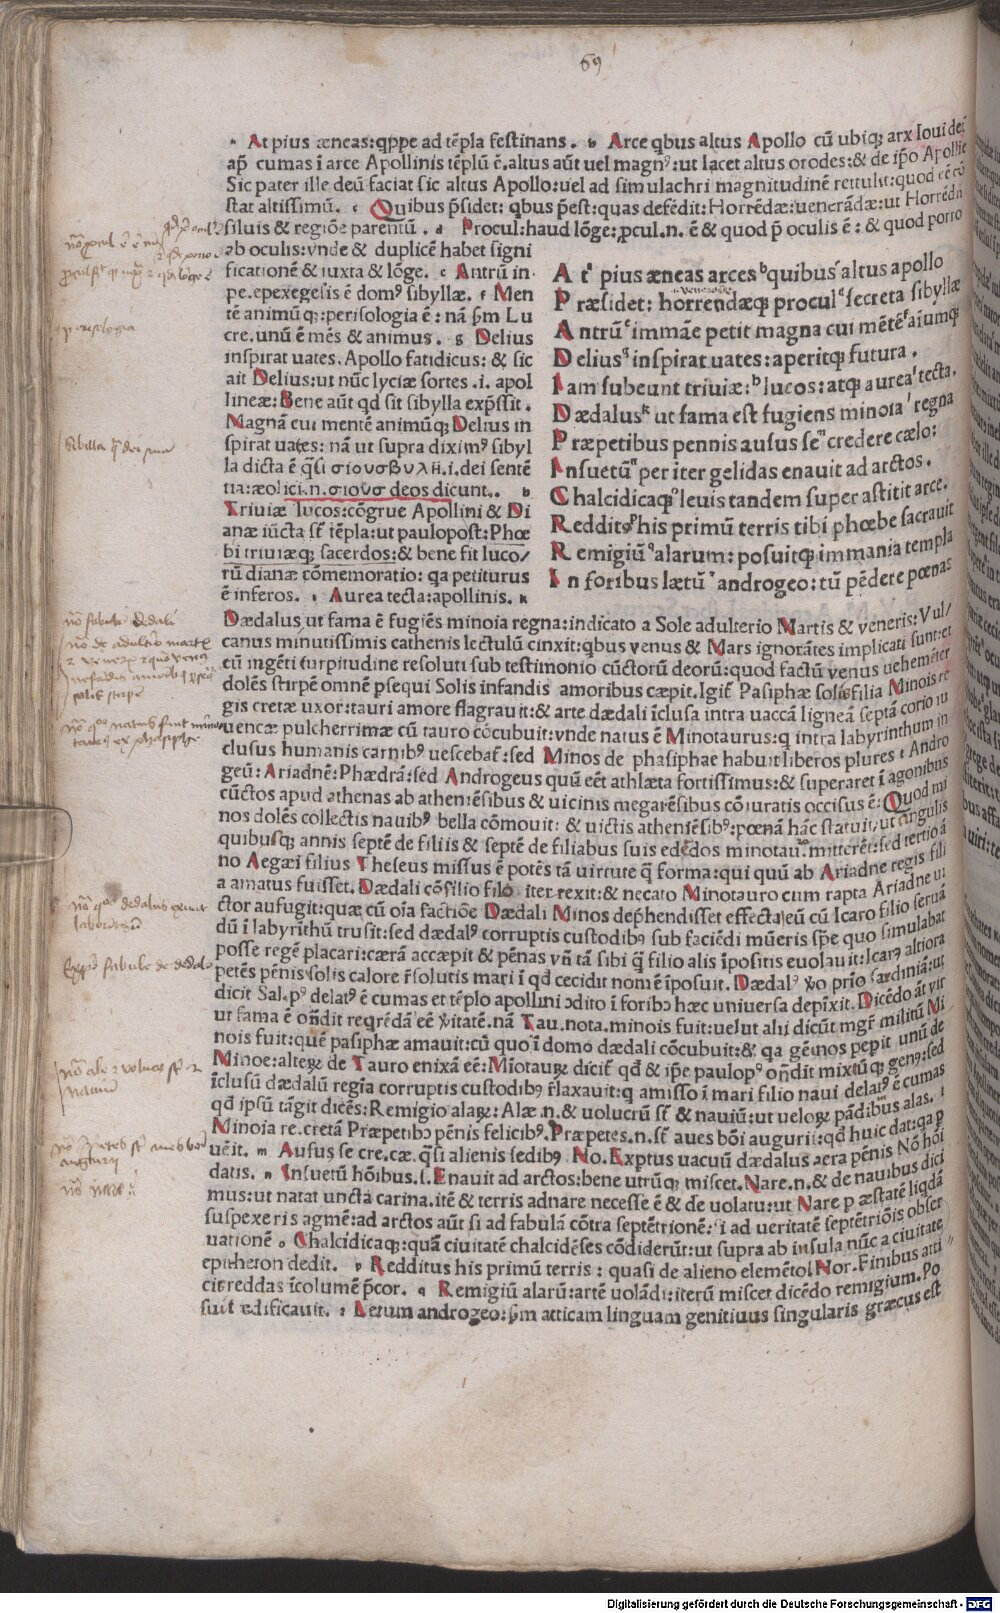 69
a At pius æneas: qppe ad tēpla festinans. b Arce qbus altus Apollo cū ubiq; arx Ioui det
ap̄ cumas ī arce Apollinis tēplū ē. altus aūt uel magnꝰ: ut Iacet altus orodes: & de ip̄o Apollie
Sic pater ille deū faciat sic altus Apollo: uel ad simulachri magnitudinē rettulit: quod eē cō
stat altissimū. c Quibus p̄sidet: qbus p̄est: quas defēdit: Horrēdæ: uenerādæ: ut Horrēdū
siluis & regiōe parentū. d Procul: haud lōge: ꝓcul. n. ē & quod p̄ oculis ē: & quod porro
ab oculis: vnde & duplicē habet signi
ficationē & iuxta & lōge. e Antrū in
pe. epexegesis ē domꝰ sibyllæ. f Men
tē animū q;: perisologia ē: nā ẜm Lu
cre. unū ē mēs & animus. g Delius
inspirat uates. Apollo fatidicus: & sic
ait Delius: ut nūc lyciæ sortes .i. apol
lineæ: Bene aūt qd sit sibylla exp̄ssit.
Magnā cui mentē animūq; Delius in
spirat uates: nā ut supra diximꝰ sibyl
la dicta ē q̄si σιουσβυλη .i. dei sentē
tia: æolici. n. σιουσ deos dicunt. h
Triuiæ lucos: cōgrue Apollini & Di
anæ iūcta st̄ tēpla: ut paulopost: Phœ
bi triuiæq; sacerdos: & bene fit luco/
rū dianæ cōmemoratio: qa petiturus
ē inferos. i Aurea tecta: apollinis. k
At pius æneas arces quibus altus apollo
Præsidet: horrendæq; procul secreta sibyllæ
Antrū immāe petit magna cui mētē aīumq;
Delius inspirat uates: aperitq; futura.
Iam subeunt triuiæ: lucos: atq; aurea tecta.
Dædalus ut fama est fugiens minoia regna
Præpetibus pennis ausus se credere cælo:
Insuetū per iter gelidas enauit ad arctos.
Chalcidicaq; leuis tandem super astitit arce.
Redditꝰ his primū terris tibi phœbe sacrauit
Remigiū alarum: posuitq; immania templa
In foribus lætū androgeo: tū pēdere pœnas
Dædalus ut fama ē fugiēs minoia regna: indicato a Sole adulterio Martis & veneris: Vul/
canus minutissimis cathenis lectulū cinxit: qbus venus & Mars ignorātes implicati sunt: et
cū ingēti turpitudine resoluti sub testimonio cūctorū deorū: quod factū venus uehemēter
dolēs stirpē omnē ꝑsequi Solis infandis amoribus cæpit. Igit̄ Pasiphæ solis filia Minois re
gis cretæ uxor: tauri amore flagrauit: & arte dædali īclusa intra uaccā ligneā septā corio iu
uencæ pulcherrimæ cū tauro cōcubuit: vnde natus ē Minotaurus: q intra labyrinthum in
clusus humanis carnibꝰ uescebat̄: sed Minos de phasiphae habuit liberos plures: Andro
geū: Ariadnē: Phædrā: sed Androgeus quū eēt athlæta fortissimus: & superaret ī agonibus
cūctos apud athenas ab atheniēsibus & uicinis megarēsibus cōiuratis occisus ē: Quod mi
nos dolēs collectis nauibꝰ bella cōmouit: & uictis atheniēsibꝰ: pœnā hāc statuit, ut singulis
quibusq; annis septē de filiis & septē de filiabus suis edēdos minotauro mitterēt: sed tertio ā
no Aegæi filius Theseus missus ē potēs tā uirtute q̄ forma: qui quū ab Ariadne regis fili
a amatus fuisset. Dædali cōsilio filo iter rexit: & necato Minotauro cum rapta Ariadne ui
ctor aufugit: quæ cū oīa factiōe Dædali Minos dep̄hendisset effecta: eū cū Icaro filio seruā
dū ī labyrīthū trusit: sed dædalꝰ corruptis custodibꝰ sub faciēdi mūeris sp̄e quo simulabat
posse regē placari: cæra accæpit & pēnas vñ tā sibi q̄ filio alis īpositis euolauit: Icarꝰ altiora
petēs pēnis solis calore r̄solutis mari ī qd cecidit nomē īposuit. Dædalꝰ ꝟo prīo sardiniā: ut
dicit Sal. pꝰ delatꝰ ē cumas et tēplo apollini ꝯdito ī foribꝰ hæc uniuersa depīxit. Dicēdo āt vir
ut fama ē oñdit reqrēdā eē ꝟitatē. nā Tau. nota. minois fuit: uelut alii dicūt mgr̄ militū Mi
nois fuit: quē pasiphæ amauit: cū quo ī domo dædali cōcubuit: & qa gēinos peꝑit unū de
Minoe: alteꝝ de Tauro enixā eē: Mīotauꝝ dicit̄ qd & ip̄e paulopꝰ oñdit mixtūq; genꝰ: sed
īclusū dædalū regīa corruptis custodibꝰ r̄laxauit: q amisso ī mari filio naui delatꝰ ē cumas
qd ipsū tāgit dicēs: Remigio alaꝝ: Alæ. n. & uolucrū st̄ & nauiū: ut ueloꝝ pādibus alas. l
Minoia re. cretā Præpetibꝰ pēnis felicibꝰ. Præpetes. n. st̄ aues bōi augurii: qd huic dat: qa p
uēit. m Ausus se cre. cæ. q̄si alienis sedibꝰ No. Exptus uacuū dædalus aera pēnis Nō hōi
datis. n Insuetū hōibus. s. Enauit ad arctos: bene utrūq; miscet. Nare. n. & de nauibus dici
mus: ut natat uncta carina. itē & terris adnare necesse ē & de uolatu: ut Nare p æstatē liqdā
suspexeris agmē: ad arctos aūt si ad fabulā cōtra septētrionē: si ad ueritatē septētriōis obser
uationē. o Chalcidicaq;: quā ciuitatē chalcidēses cōdiderūt: ut supra ab insula nūc a ciuitate
epitheron dedit. p Redditus his primū terris: quasi de alieno elemēto Nor. Finibus atti
cis reddas īcolumē p̄cor. q Remigiū alarū: artē uolādi: iterū miscet dicēdo remigium. Po
suit ædificauit. r Letum androgeo: ẜm atticam linguam genitiuus singularis græcus est
Digitalisierung gefördert durch die Deutsche Forschungsgemeinschaft - DFG